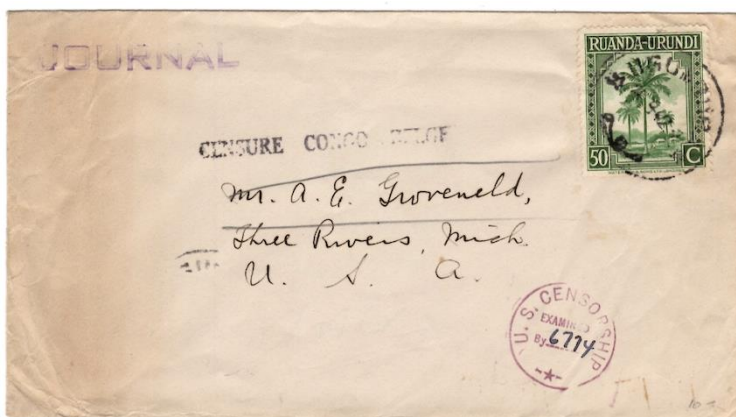 JOURNAL
RUANDA-URUNDI
50 C
CENSURE CONGO BELGE
Mr. A. E. Groveneld,
Three Rivers, Mich.
U. S. A.
U. S. CENSORSHIP
EXAMINED
By 6774